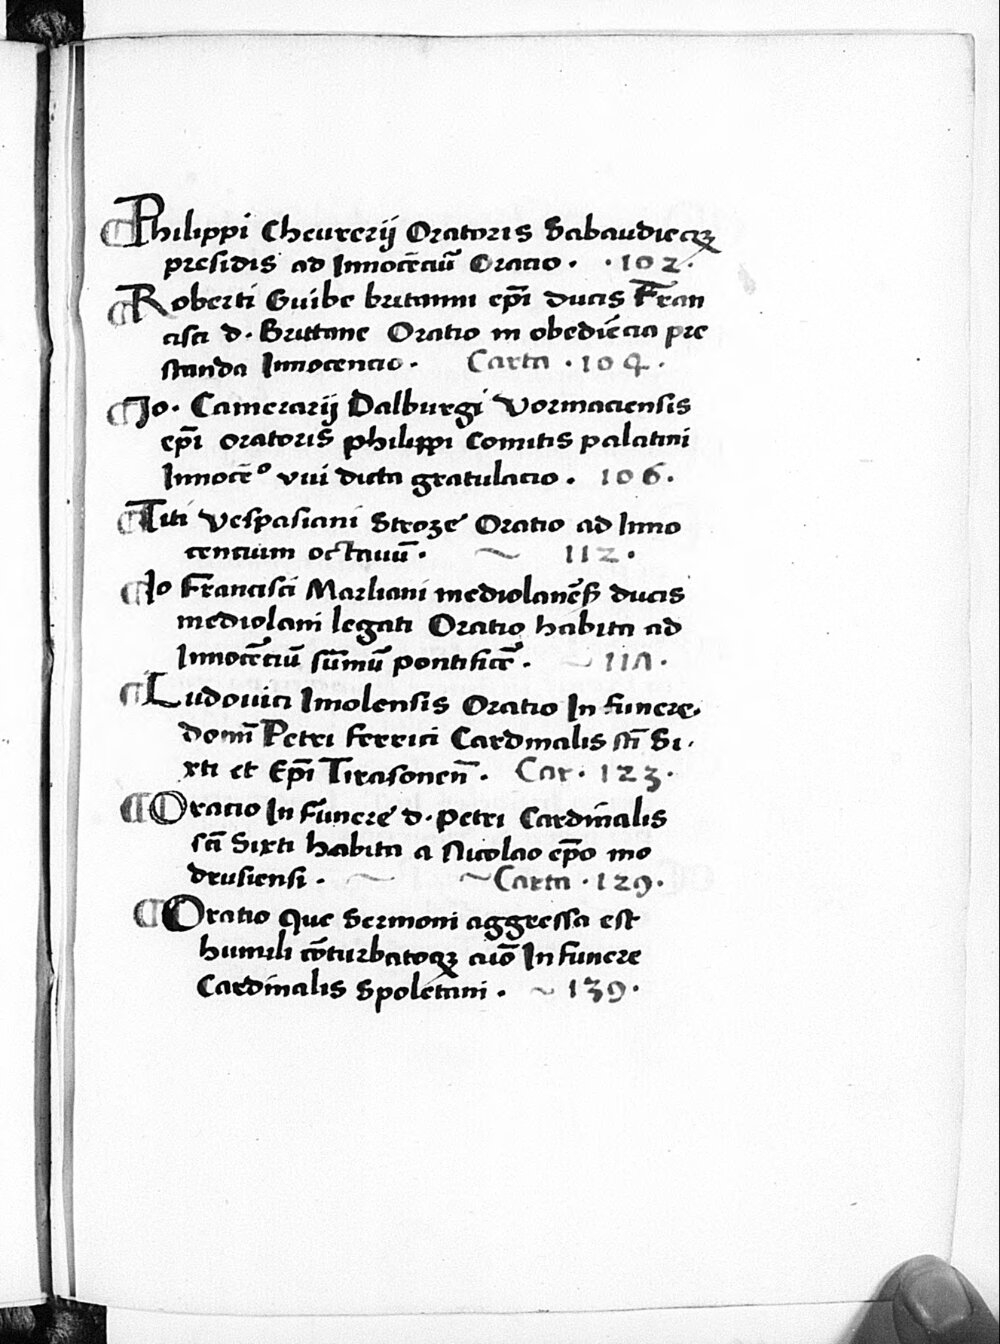 ¶Philippi Cheurerij Oratoris Sabaudieqꝫ
presidis ad Innocẽtiũ Oratio · ·102·
¶Roberti Guibe britanni ep̃i ducis Fran
cisci d. Brittane Oratio in obediẽcia pre
standa Innocencio · Carta ·104·
¶Jo. Camerarij Dalburgi Vormaciensis
ep̃i oratoris philippi Comitis palatini
Innocẽº viii dicta gratulacio · 106·
¶Titi Vespasiani Stroze Oratio ad Inno
centium octauũ · ~ 112·
¶Jo Francisci Marliani mediolanẽß ducis
mediolani legati Oratio habita ad
Innocẽtiũ sũmũ pontificẽ · ~ 11Λ·
¶Ludouici Imolensis Oratio In funere
domĩ Petri ferrici Cardinalis sñ Si
xti et Ep̃i Tirasoneñ · Car· 123·
¶Oratio In fũnere d. Petri Cardinalis
sc̃i Sixti habita a Nicolao ep̃o mo
drusiensi · ~ ~ Carta ·129·
¶Oratio que Sermoni aggressa est
humili cõturbatoqꝫ aiõ In funere
Cardinalis Spoletani · ~ 139·